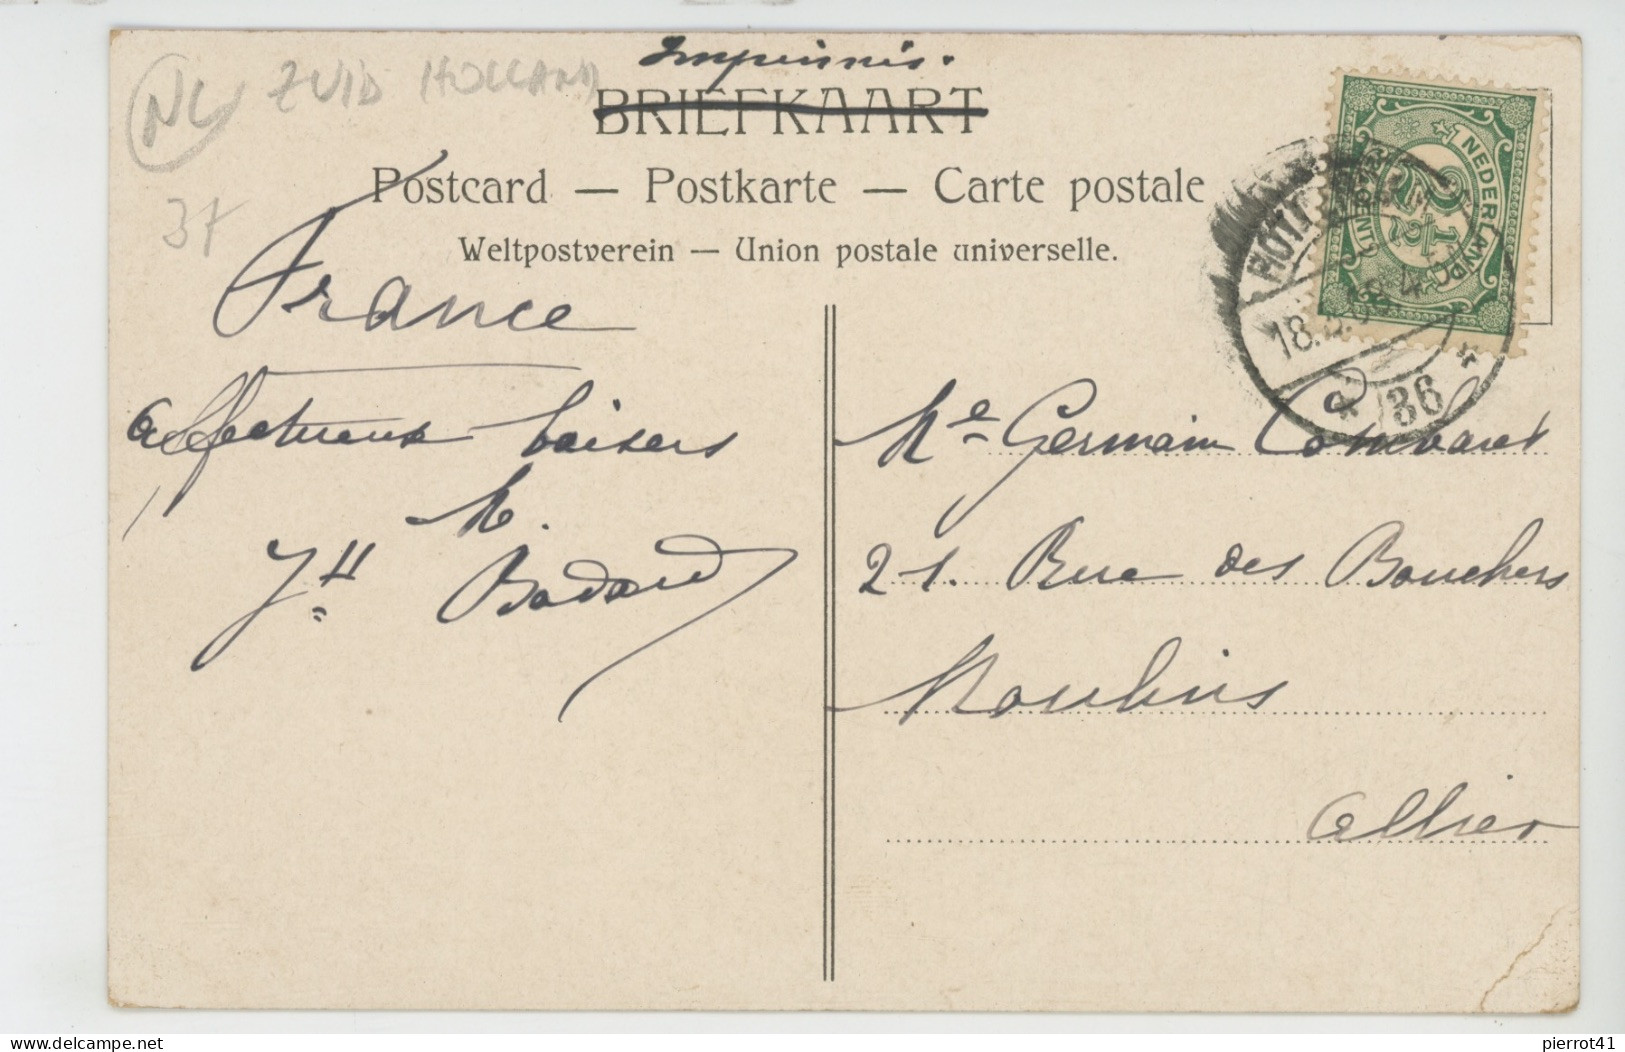 NL ZUID HOLLAND
37
Imprimés.
BRIEFKAART
Postcard — Postkarte — Carte postale
Weltpostverein — Union postale universelle.
France
affectueux baisers
M.
Jh Badard
NEDERLAND
2½
CENT
ROTTERDAM
18.
36
Me Germain Combaret
21. Rue des Bouchers
Moulins
Allier
delcampe.net
pierrot41